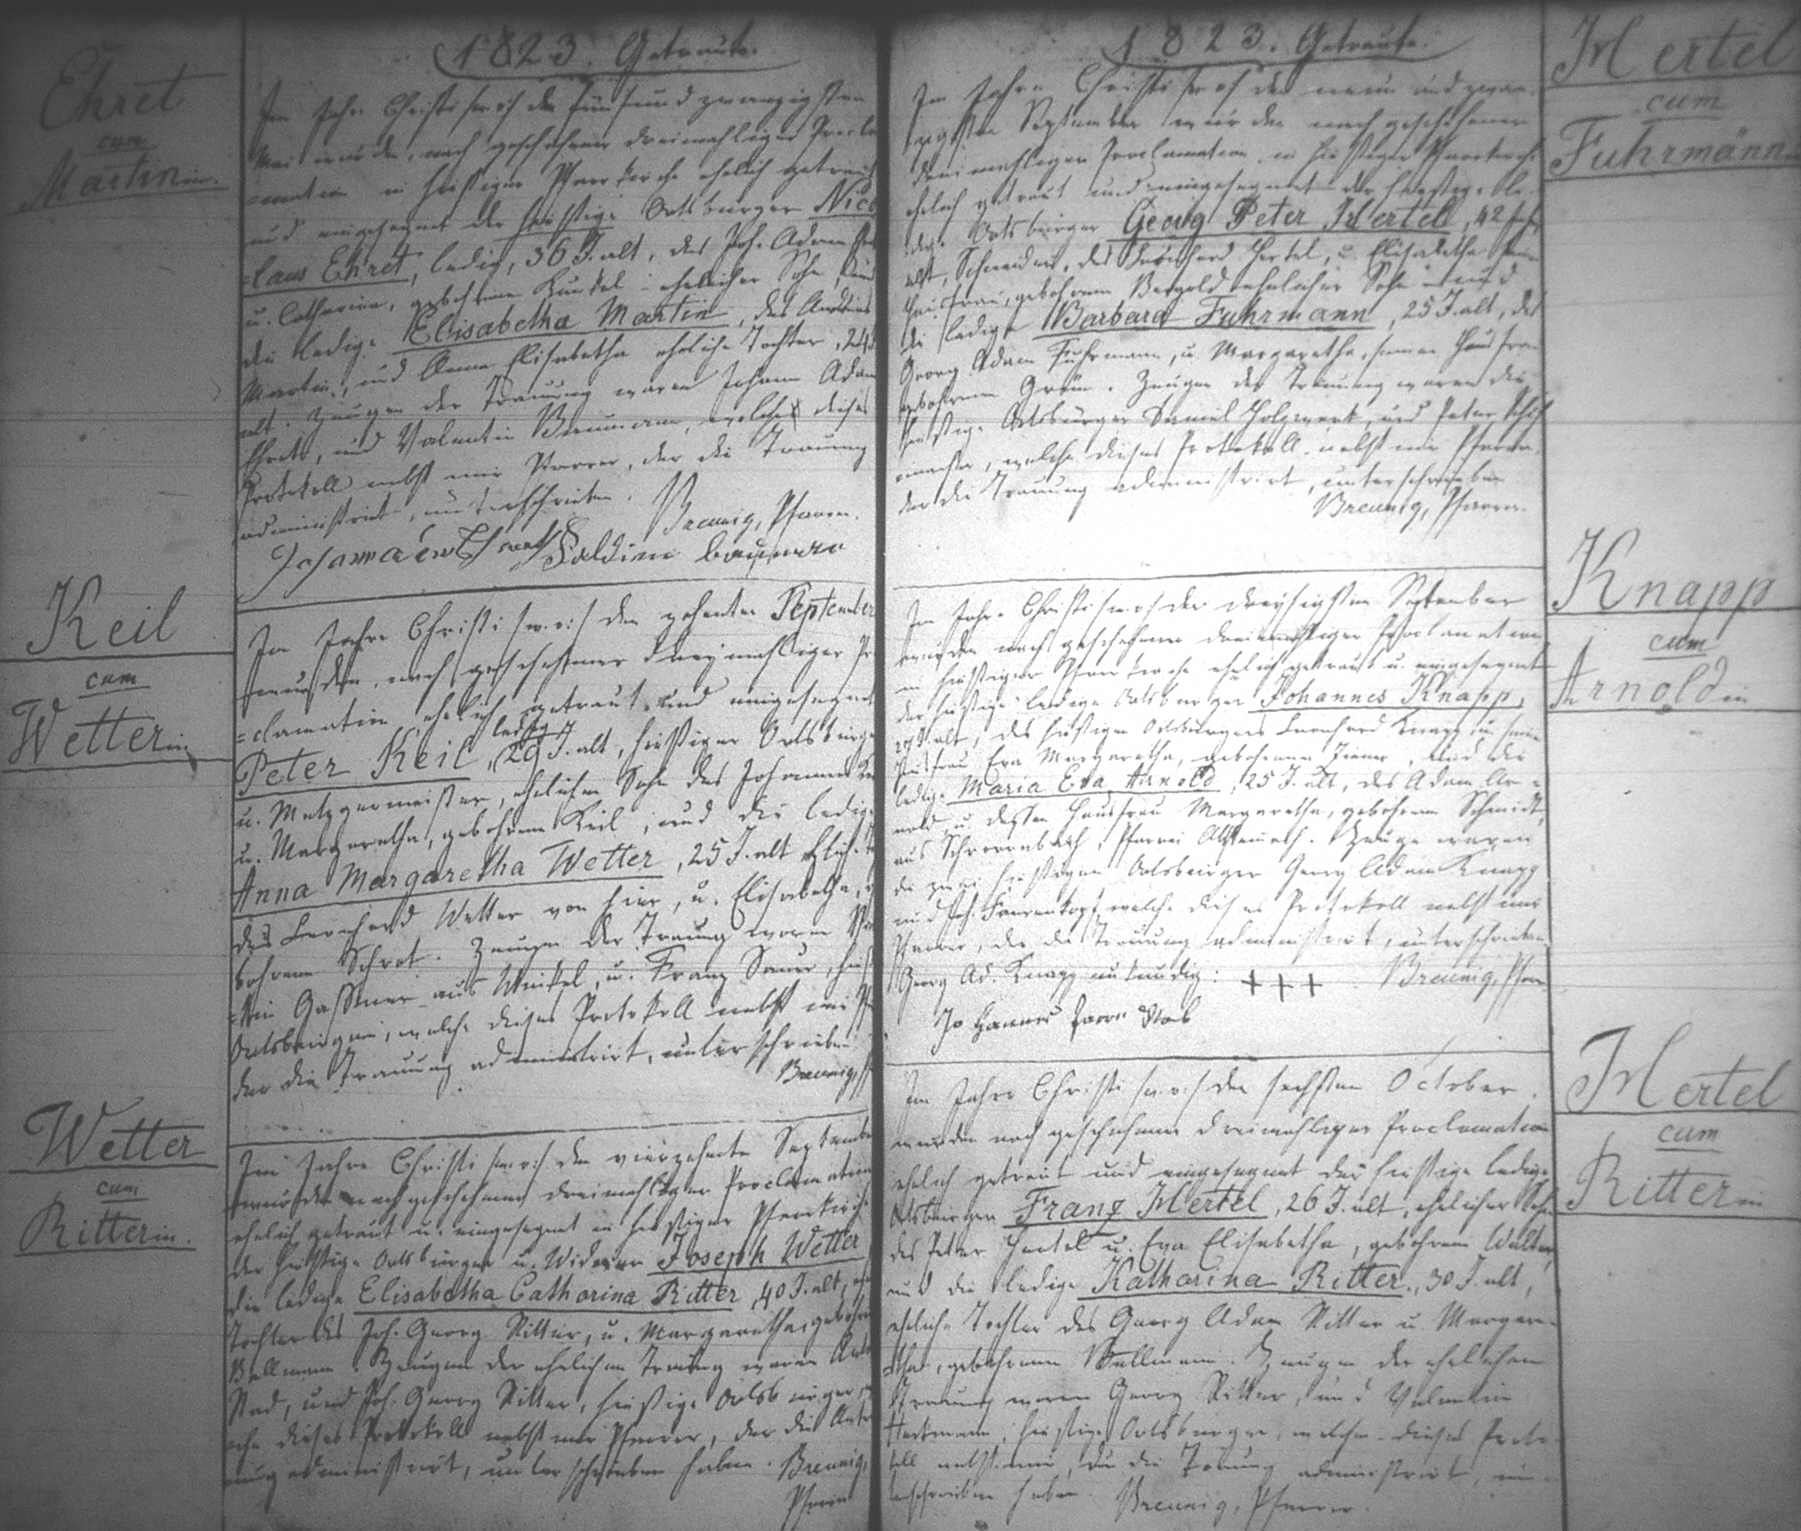 1823. Getraute.
Ehret
cum
Martinin.
Im Jahr Christi /w. o./ den fünfundzwanzigsten
Mai wurde, nach geschehener dreimahliger Procla
=mation in hiesiger Pfarrkirche ehelich getraut
und eingesegnet der hiesige Ortsbürger Nico
=laus Ehret, ledig, 36 J. alt, des Joh. Adam
u. Catharina, gebohrene Kunkel ehelicher Sohn, und
die ledige Elisabetha Martin, des Andreas
Martin, und Anna Elisabetha eheliche Tochter, 24 J.
alt. Zeugen der Trauung waren Johann Adam
Ehret, und Valentin Baumann, welche dieses
Protokoll nebst mir Pfarrer, der die Trauung
administrirt, unterschrieben.
Breunig, Pfarrer.
Baumann
Keil
cum
Wetterin
Im Jahre Christi /w. o./ den zehenten September
wurden, nach geschehener dreymahliger Pro
=clamation ehelich getraut und eingesegnet
ledig
Peter Keil, 29 J. alt, hiesiger Ortsbürger
u. Metzgermeister, ehelicher Sohn des Johannes
u. Margaretha, gebohrene Keil, und die ledige
Anna Margaretha Wetter, 25 J. alt
des Leonhard Wetter von hier, u. Elisabetha, ge
bohrene Schrot. Zeugen der Trauung waren
Gassner aus Winkel, u. Franz Sauer, hies
Ortsbürger, welche dieses Protokoll nebst mir
der die Trauung administrirt, unterschrieben.
Breunig,
Wetter
cum
Ritterin.
Im Jahre Christi /w. o./ den vierzehnte September
wurde nach geschehener dreimahliger Proclamation
ehelich getraut u. eingesegnet in hiesiger Pfarrkirche
der hiesige Ortsbürger u. Widwer Joseph Wetter
die ledige Elisabetha Catharina Ritter, 40 J. alt,
Tochter des Joh. Georg Ritter, u. Margaretha, gebohrene
Bellmann. Zeugen der ehelichen Trauung waren
und Joh. Georg Ritter, hiesige Ortsbürger,
dieses Protokoll nebst mir Pfarrer, der die
administrirt, unterschrieben haben. Breunig,
Pfarrer
1823. Getraute.
Hertel
cum
Fuhrmännin
Im Jahre Christi /w. o./ den neun und zwan
zigsten September wurden nach geschehener
dreimahliger Proclamation in hiesiger Pfarrkirche
ehelich getraut und eingesegnet der hiesige le
dige Ortsbürger Georg Peter Hertel, 42 Jahr
alt, Schneider, des Leonhard Hertel, u. Elisabetha seiner
Hausfrau, gebohrene Bergold ehelicher Sohn und
die ledige Barbara Fuhrmann, 25 J. alt, des
Georg Adam Fuhrmann, u. Margaretha, seiner Hausfrau
gebohrene Grün. Zeugen der Trauung waren die
hiesige Ortsbürger Daniel und Peter
welche dieses Protokoll nebst mir Pfarrer
der die Trauung administrirt, unterschrieben
Breunig, Pfarrer.
Knapp
cum
Arnoldin
Im Jahre Christi /w. o./ den dreysigsten September
wurden nach geschehener dreimahliger Proclamation
in hiesiger Pfarrkirche ehelich getraut u. eingesegnet
der hiesige ledige Ortsbürger Johannes Knapp,
29 J. alt, des hiesigen Ortsbürgers Leonhard Knapp, u. seiner
Hausfrau Eva Margaretha, gebohrene und die
ledige Maria Eva Arnold, 25 J. alt, des Adam Ar=
nold u. dessen Hausfrau Margaretha, gebohrene Schmidt,
aus Pfarrei Zeuge waren
die zwei hiesigen Ortsbürger Georg Adam Knapp
und Joh. welche dieses Protokoll nebst mir
Pfarrer, der die Trauung administrirt, unterschrieben
Georg Ad. Knapp unkundig: +++ Breunig, Pfarr
Johannes
Hertel
cum
Ritterin
Im Jahre Christi /w. o./ den sechsten October
wurden nach geschehener dreimahliger Proclamation
ehelich getraut und eingesegnet der hiesige ledige
Ortsbürger Franz Hertel, 26 J. alt, ehelicher Sohn
des Peter Hertel u. Eva Elisabetha, gebohrene Walter,
und die ledige Katharina Ritter, 30 J. alt,
eheliche Tochter des Georg Adam Ritter u. Margare=
tha, gebohrene Bellmann. Zeugen der ehelichen
Trauung waren Georg Ritter, und Valentin
Hartmann, hiesige Ortsbürger, welche dieses Proto
koll nebst mir, der die Trauung administrirt, un
terschrieben haben. Breunig, Pfarrer.